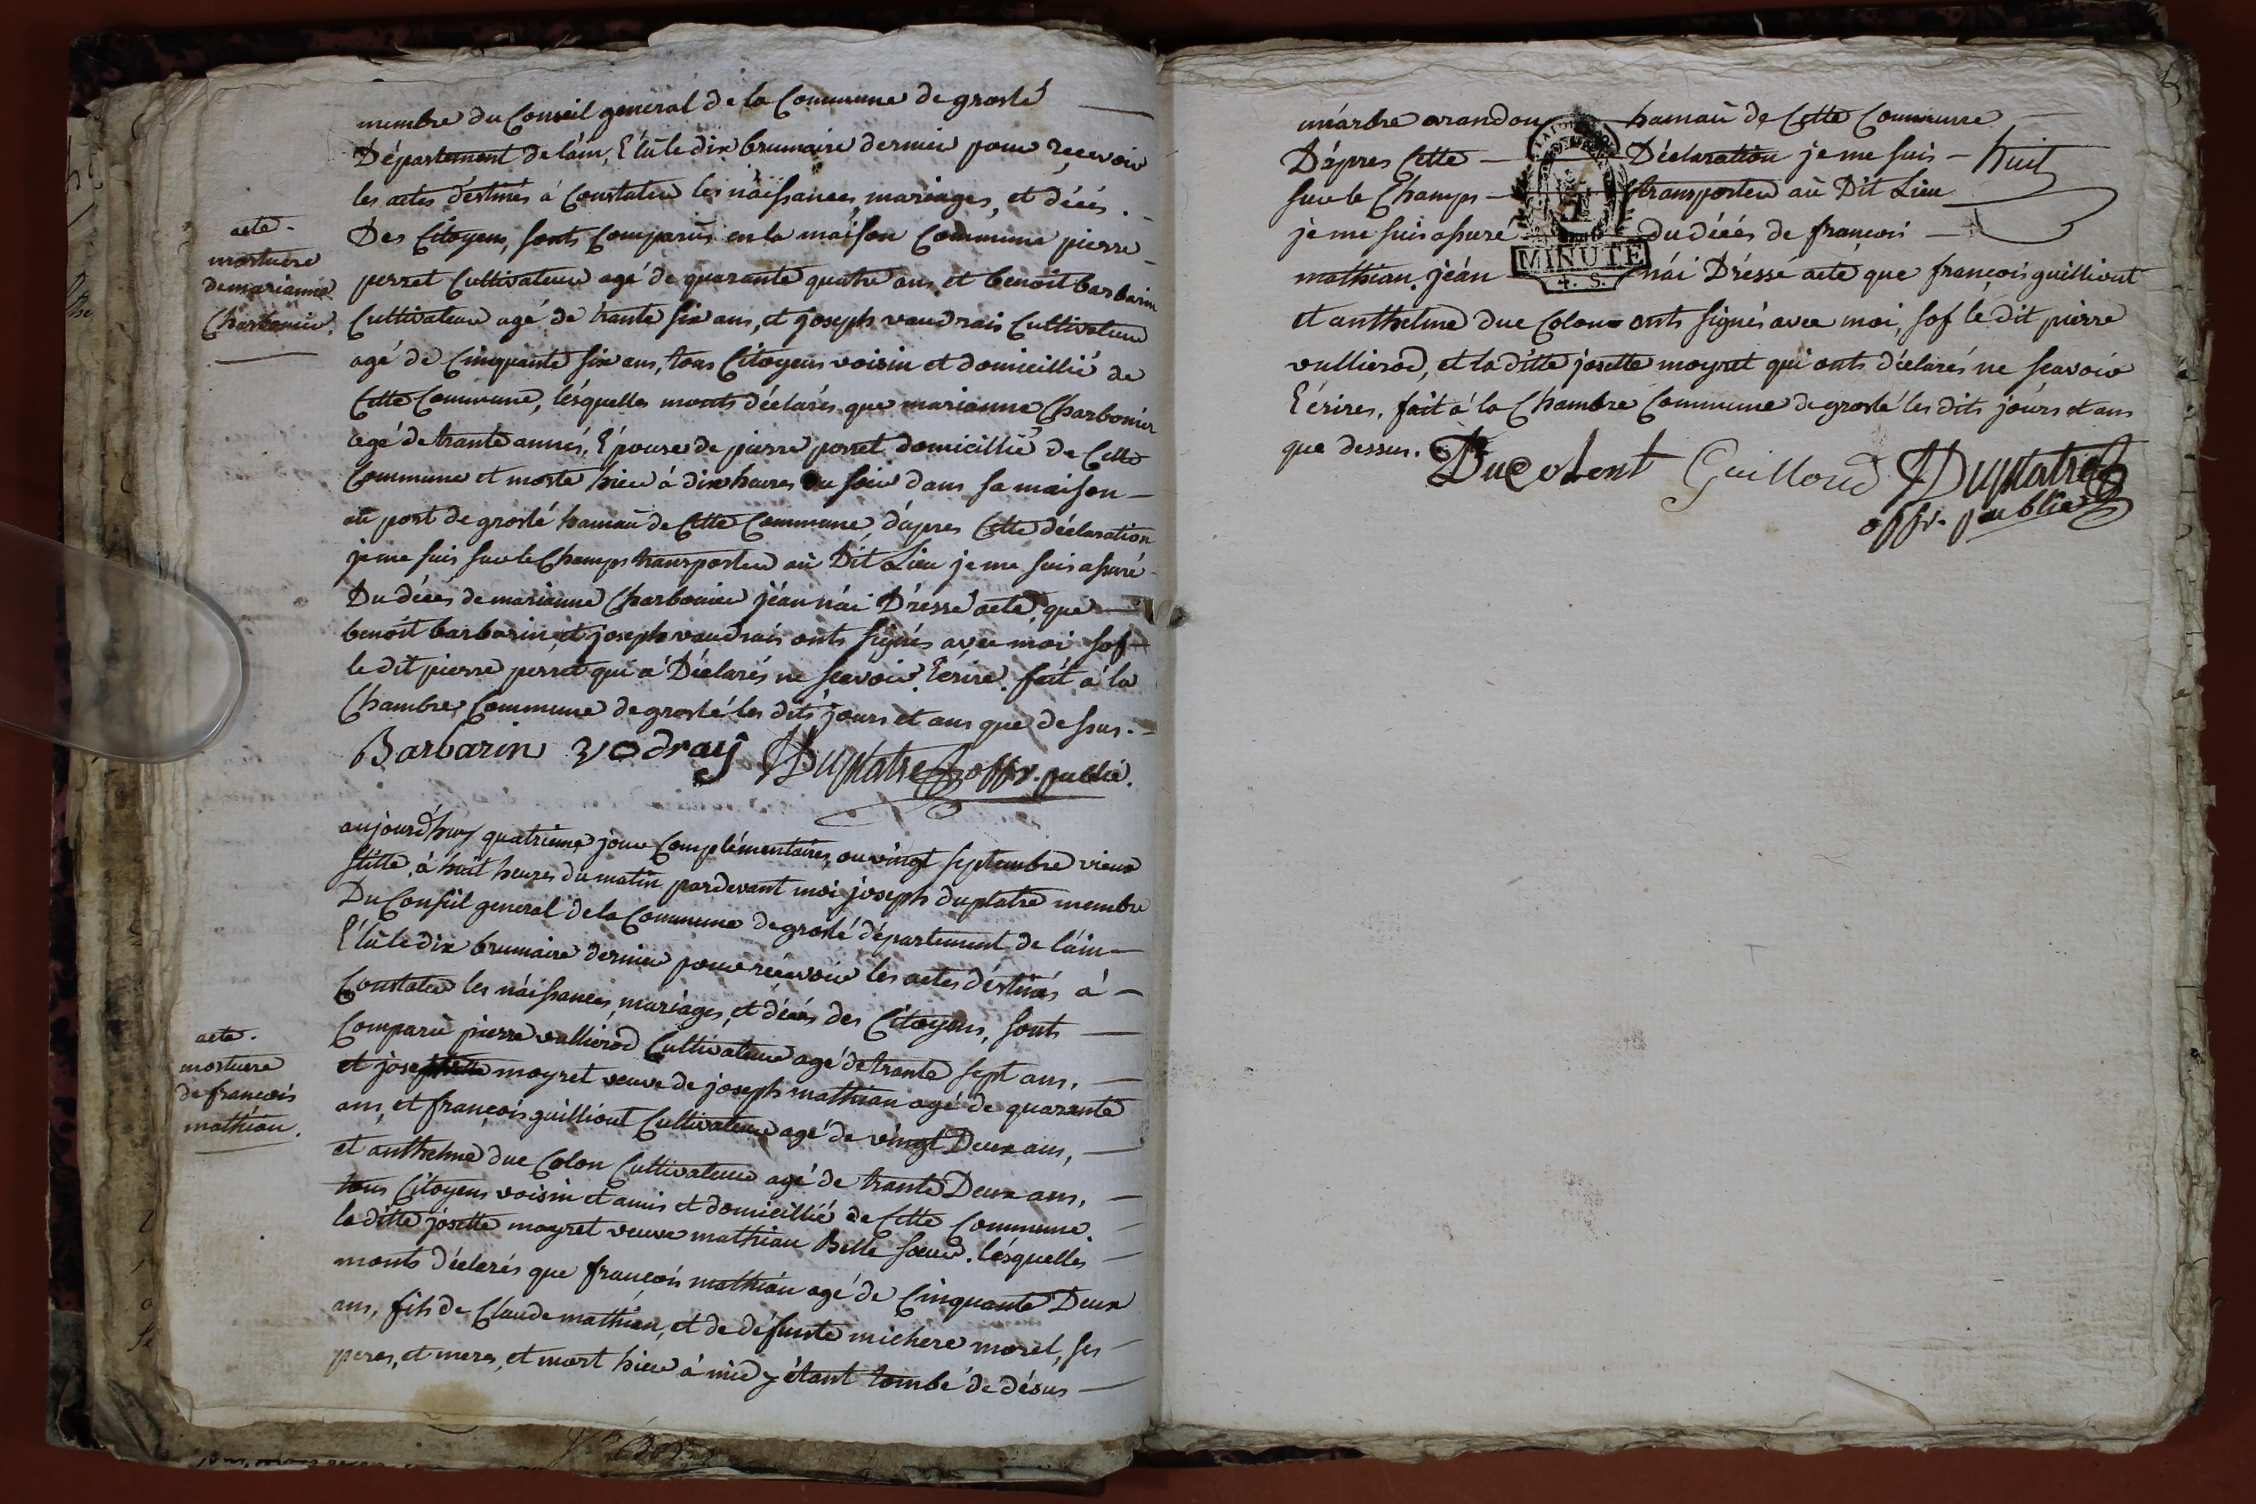 membre du Conseil general de la Commune de groslé
Département de láin, Élû le dix brumaire dernier pour recevoir
les actes déstinés à Constater les náissances, mariages, et décés.
Des Citoyens, sonts Comparûs en la máison Commune pierre
perret Cultivateur agé de quarante quatre ans, et benoit barbarin
Cultivateur agé de trante six ans, et joseph vaudrais Cultivateur
agé de Cinquante six ans, tous Citoyens voisin et domicillié de
Cette Commune, lésquelles monts déclarés que marianne Charbonier
agé de trante annés, Épouse de pierre perret domicillié de Cette
Commune et morte hier à dix heures du soir dans sa maison
aû port de groslé hamaû de Cette Commune, dápres Cette déclaration
je me suis sur le Champs transporter aû Dit Lieu je me suis assuré
Du décés de marianne Charbonier jéan nái Dréssé acte, que
benoit barbarin, et joseph vaudrais onts signés avec moi, sof
le dit pierre perret qui a Déclarés ne scavoir Écrire. fait à la
Chambre Commune de groslé les dits jours et ans que dessus.
acte.
mortuere
de marianne
Charbonier.
Barbarin vodray JDuplatre offr. public.
aujourdhuy quatrieme jour Complémentaires, ou vingt septembre vieux
stille, à huit heures du matin pardevant moi joseph duplatre membre
Du Conseil general de la Commune de groslé département de láin
Élû le dix brumaire dernier pour récevoir les actes déstinés à
Constater les náissances, mariages, et décés des Citoyens, sonts
Comparu pierre vullierod Cultivateur agé de trante sept ans,
et josephte moyret veuve de joseph mathian agé de quarante
ans, et françois guilliout Cultivateur agé de vingt Deux ans,
et anthelme duc Colon Cultivateur agé de trante Deux ans,
tous Citoyens voisin et amis et domicillié de Cette Commune.
la ditte josette moyret veuve mathian Belle soeur. lésquelles
monts déclarés que françois mathian agé de Cinquante Deux
ans, fils de Claude mathian, et de défunte michere morel, ses
peres, et meres, et mort hier à midy étant tombé de désus
acte.
mortuere
de françois
mathian.
unárbre hamaû de Cette Commune
Dápres Cette Déclaration je me suis
sur le Champs transporter aû Dit Lieu
je me suis assuré du décés de françois
mathian, jéan nái Dréssé acte que françois guilliout
et anthelme duc Colon onts signés avec moi, sof le dit pierre
vullierod, et la ditte josette moyret qui onts déclarés ne scavoir
Écrires, fait à la Chambre Commune de groslé les dits jours et ans
que dessus.
huit
MINUTE
4. S.
DucoLont Guilloud JDuplatre
offr. public